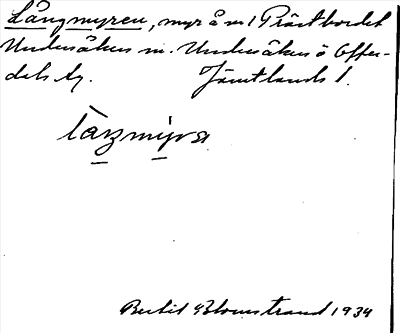 Långmyren, myr å nr 1 Prästbordet
Undersåkers sn. Undersåkers o Offer-
dals tg. Jämtlands l.
Bertil Blomstrand 1934